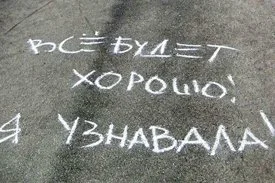 ВСЁ БУДЕТ
ХОРОШО!
Я УЗНАВАЛА!